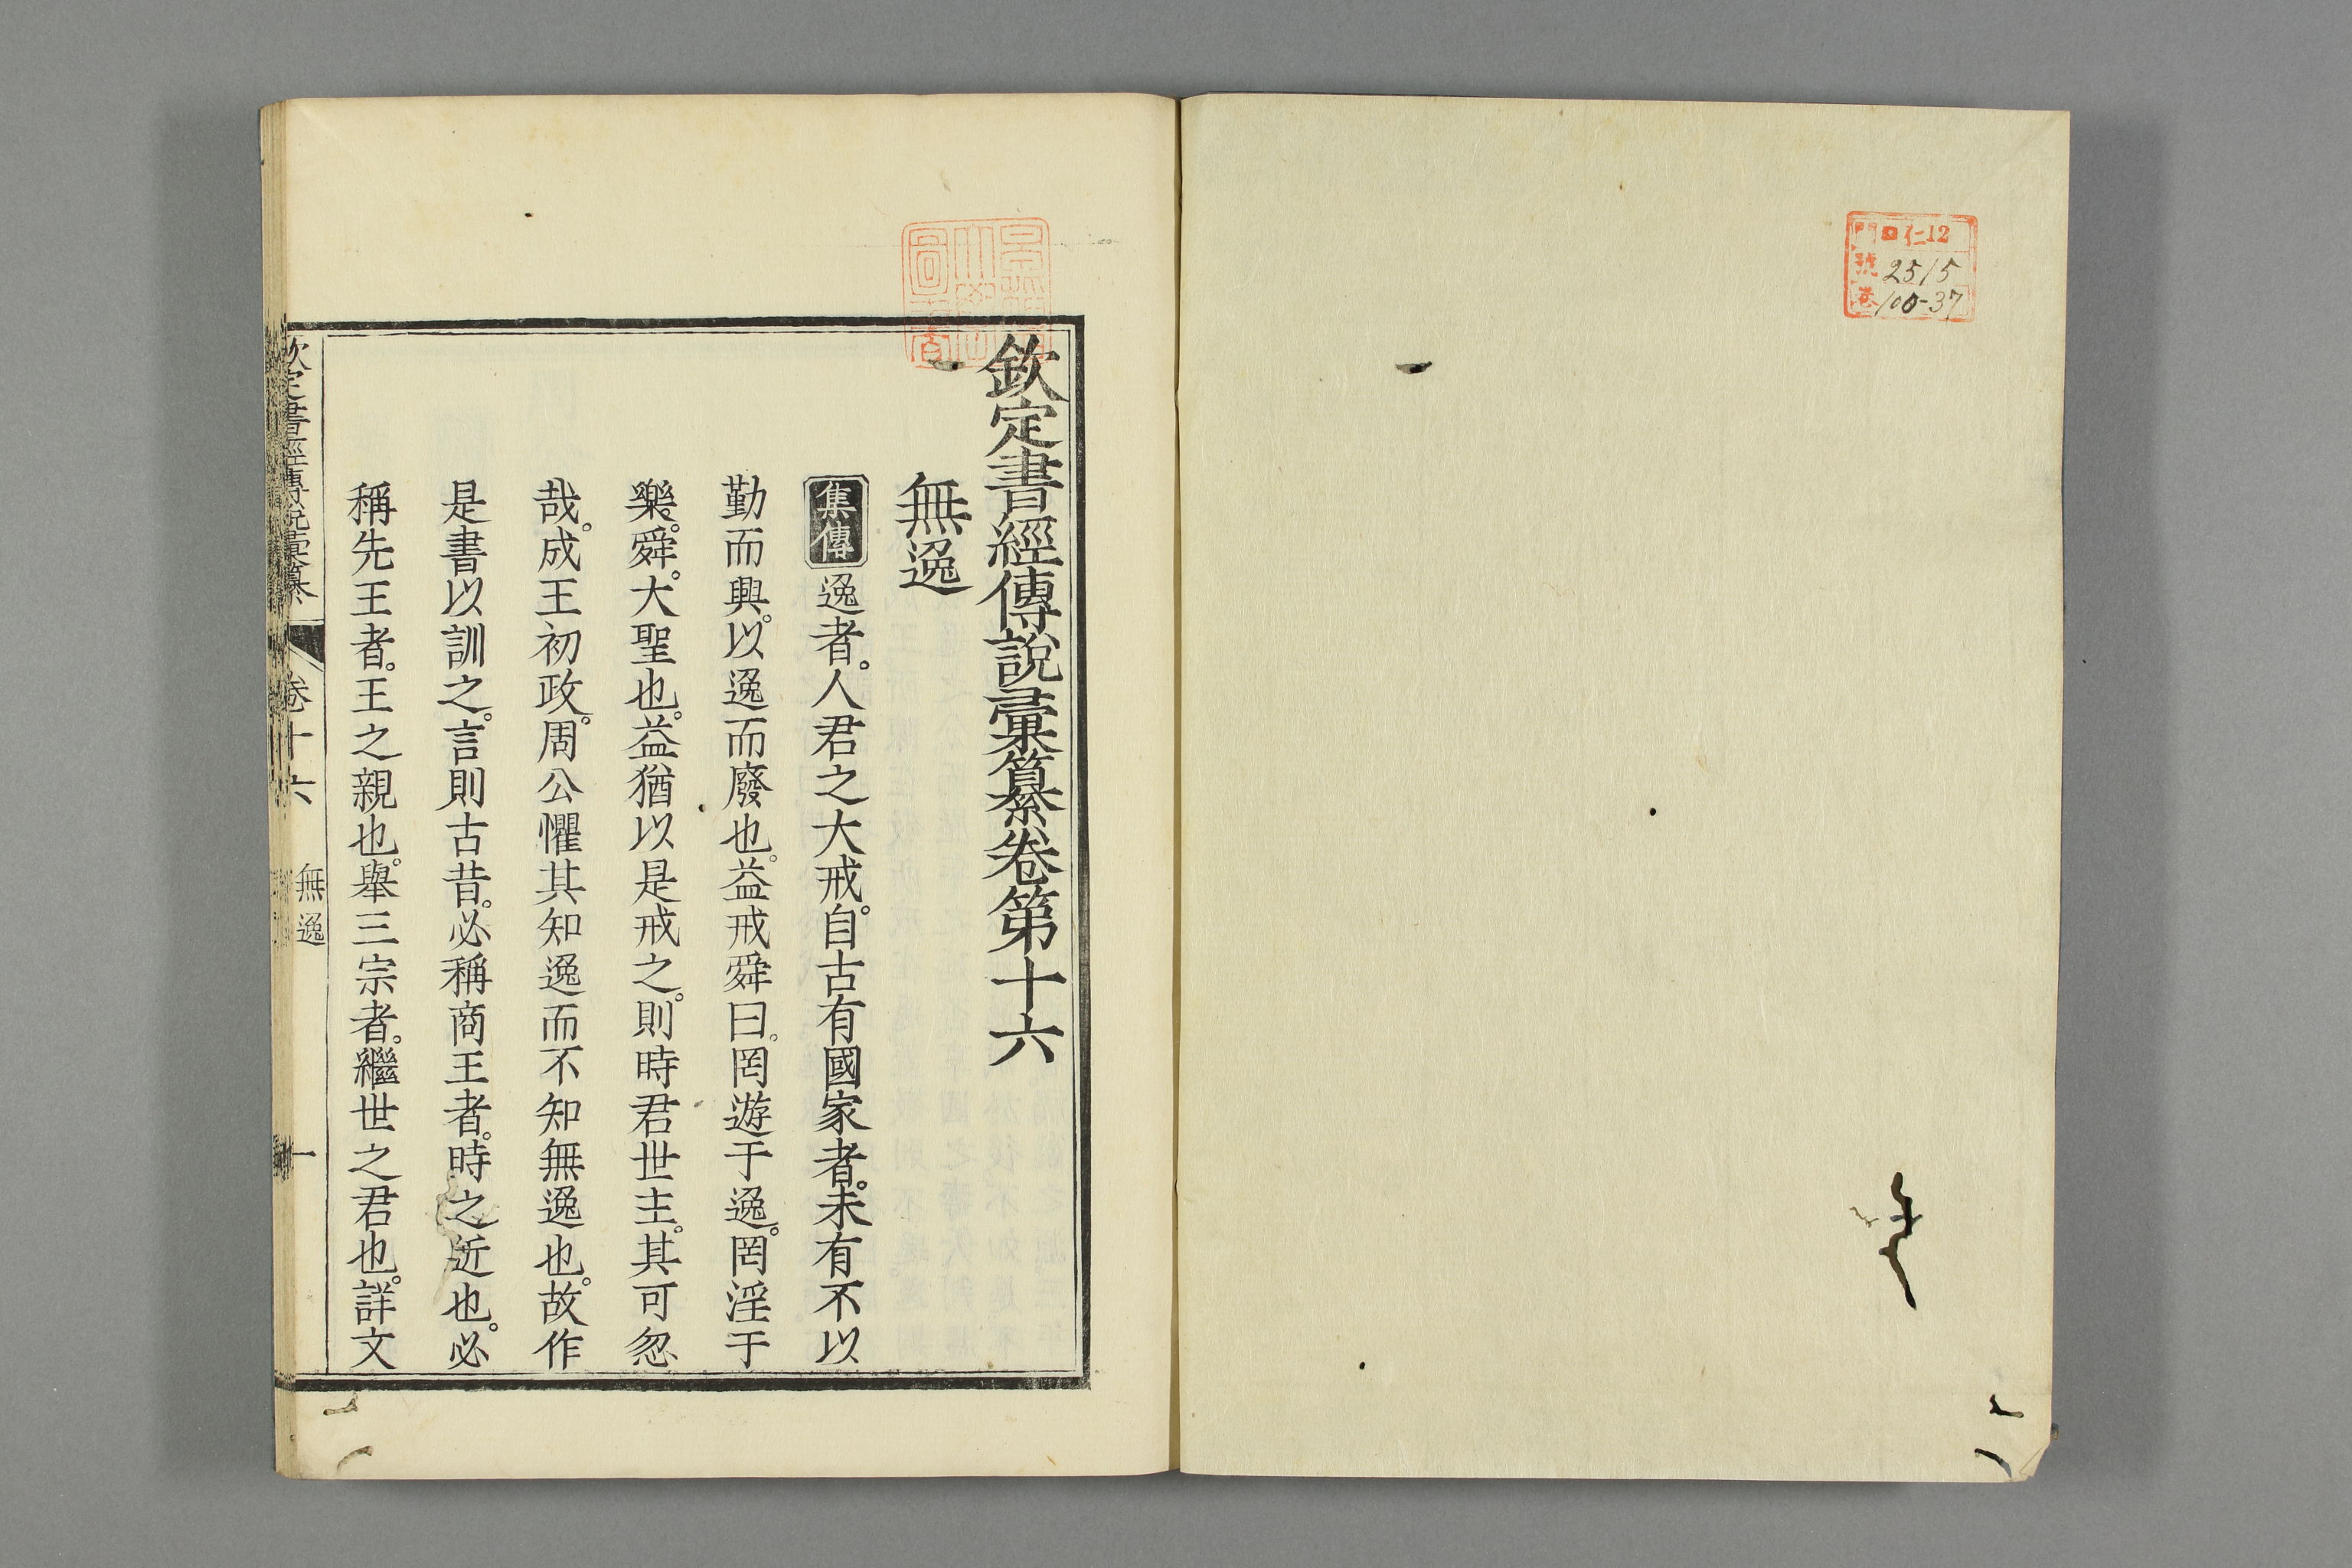 門 仁12
號 2515
卷 100-37
欽定書經傳說彙纂卷第十六
無逸
集傳 逸者。人君之大戒。自古有國家者。未有不以
勤而興。以逸而廢也。益戒舜曰。罔遊于逸。罔淫于
樂。舜。大聖也。益猶以是戒之。則時君世主。其可忽
哉。成王初政。周公懼其知逸而不知無逸也。故作
是書以訓之。言則古昔。必稱商王者。時之近也。必
稱先王者。王之親也。舉三宗者。繼世之君也。詳文
欽定書經傳說彙纂 卷十六 無逸 一